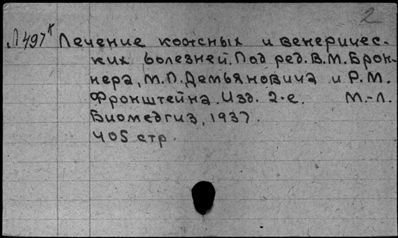 2
Л497к Лечение кожных и венеричес-
ких болезней. Под ред. В.М. Брон-
нера, М.П. Демьяновича и Р.М.
Фронштейна. Изд. 2-е. М.-Л.
Биомедгиз, 1937.
405 стр.